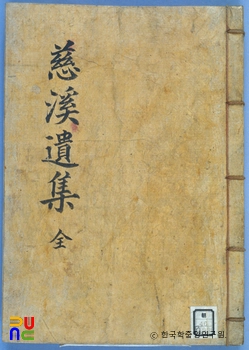 慈溪遺集 全
© 한국학중앙연구원